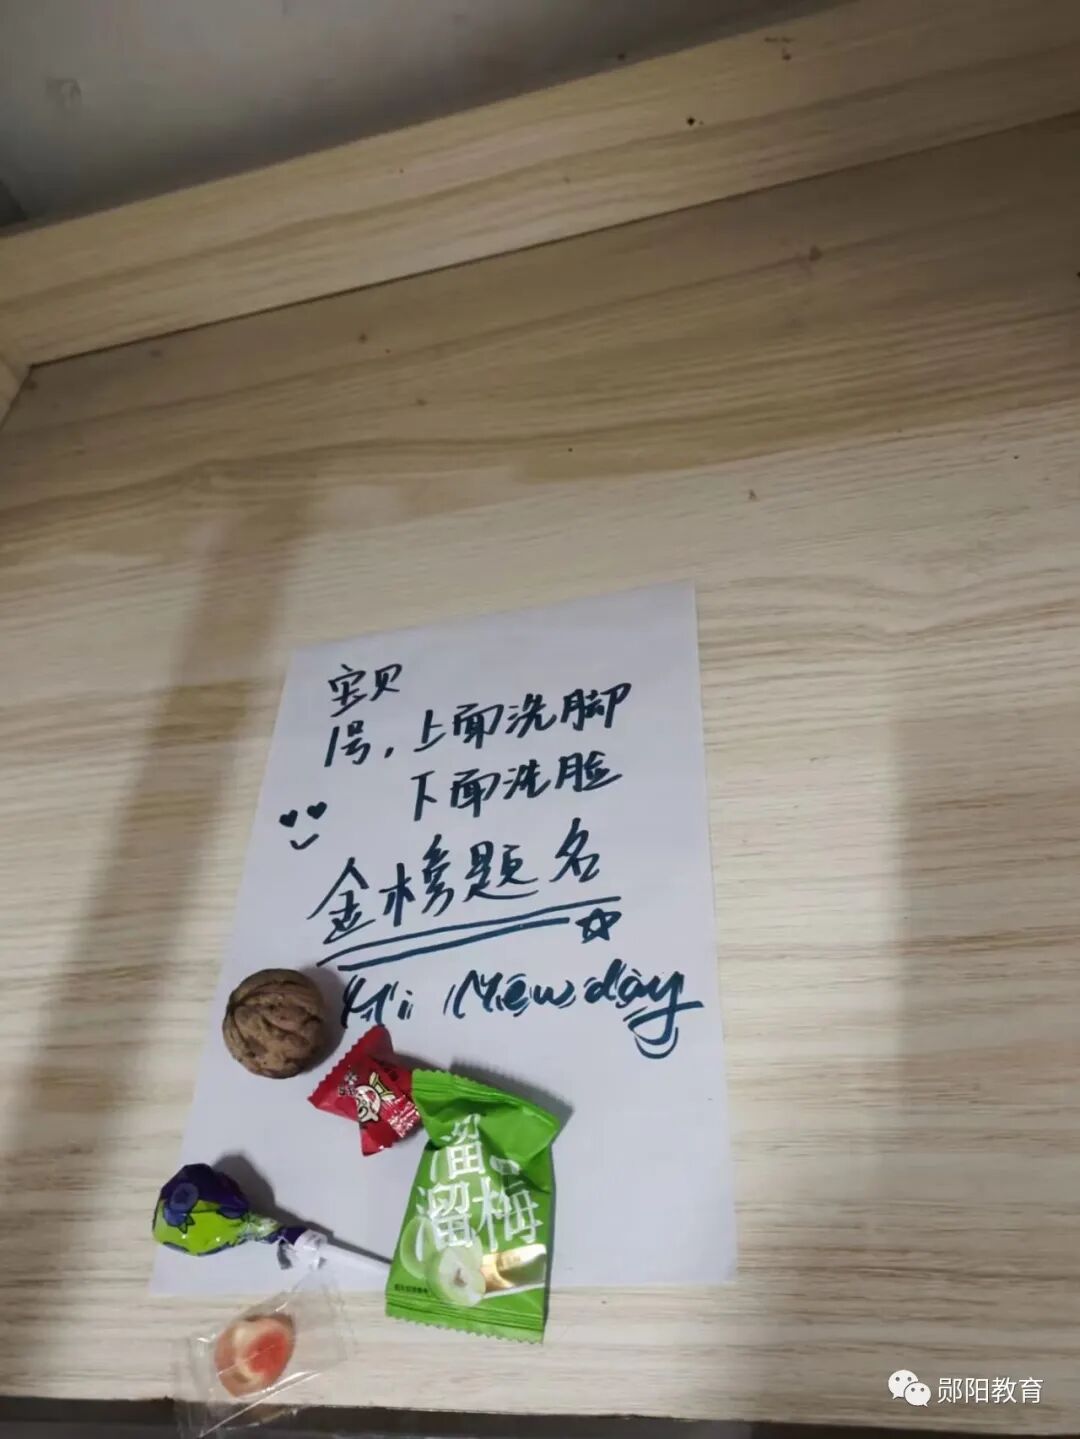 宝贝
1号，上面洗脚
下面洗脸
金榜题名
Hi New day
溜
溜梅
郧阳教育